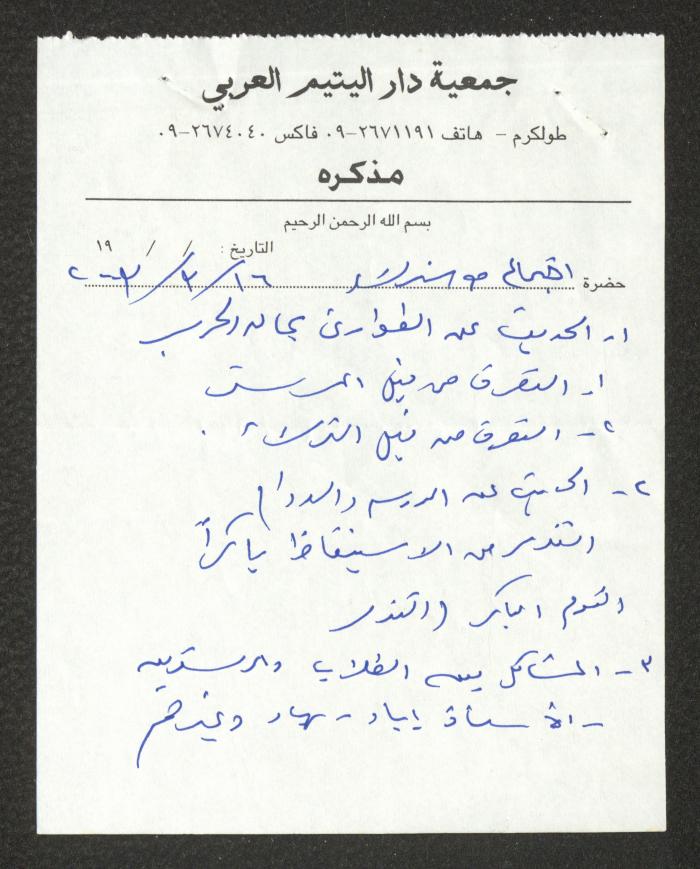 جمعية دار اليتيم العربي
طولكرم - هاتف ٢٦٧١١٩١-٠٩ فاكس ٢٦٧٤٠٤٠-٠٩
مذكره
بسم الله الرحمن الرحيم
التاريخ : / / ١٩
حضرة اجتماع ١٦/٣/٢٠٠٣
١- الحديث عن الطوارئ بحالة الحرب
١- التصرف من قبل
٢- التصرف من قبل
٢- الحديث عن الدرس والدوام
التذمر من الاستيقاظ باكراً
النوم المباكر (التذمر
٣- المشاكل بين الطلاب والمرشدين
- الأستاذ إياد - نهاد وغيرهم